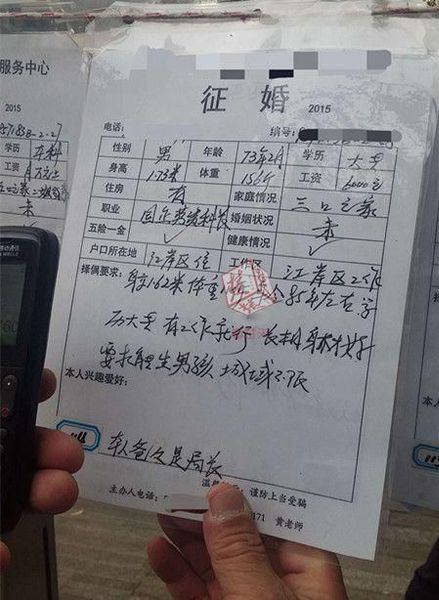 服务中心
2015
征 婚
2015
电话:
编号:
性别 男 年龄 73年2月 学历 大专
身高 1.73米 体重 156斤 工资 6000元
住房 有 家庭情况 三口之家
职业 婚姻状况 未
五险一金 ✓ 健康情况 ✓
户口所在地 江岸区住 工作区 江岸区工作
择偶要求: 身高1.62米 体重 85年左右 学
历大专 有工作就行 长相身材好
要求能生男孩 地域不限
本人兴趣爱好:
本人爸爸是局长
温 谨防上当受骗
主办人电话: 171 黄老师